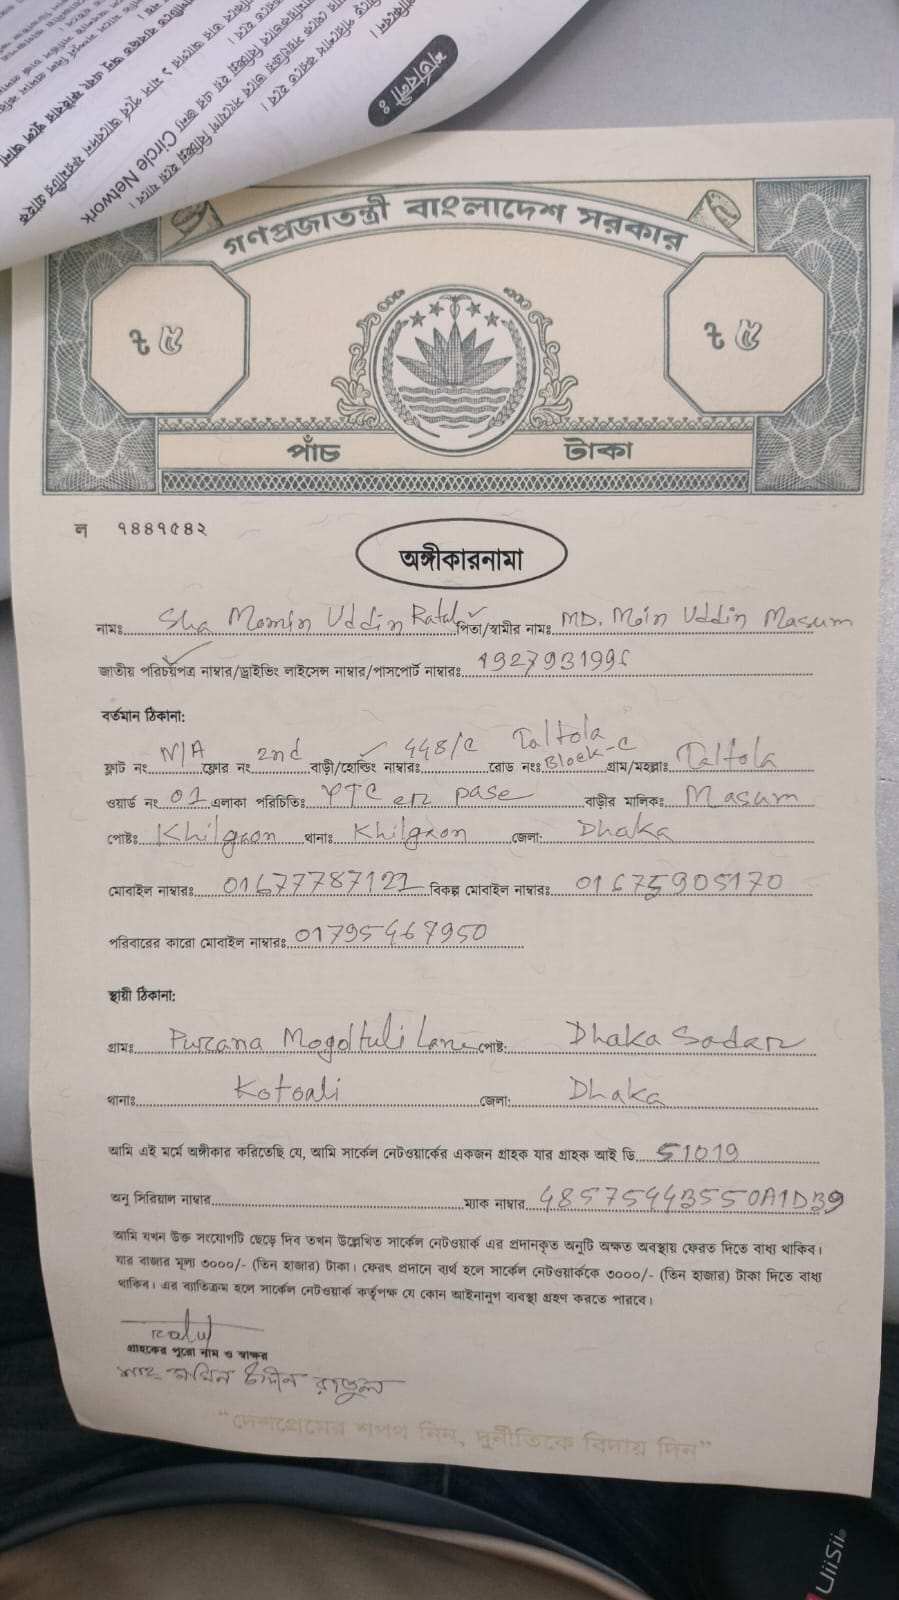 শর্তাবলী :
Circle Network
গণপ্রজাতন্ত্রী বাংলাদেশ সরকার
৳ ৫ ৳ ৫
পাঁচ টাকা
ল ৭৪৪৭৫৪২
অঙ্গীকারনামা
নামঃ Sha Momin Uddin Ratul পিতা/স্বামীর নামঃ MD. Moin Uddin Masum
জাতীয় পরিচয়পত্র নাম্বার/ড্রাইভিং লাইসেন্স নাম্বার/পাসপোর্ট নাম্বারঃ
বর্তমান ঠিকানা:
ফ্লাট নং N/A ফ্লোর নং 2nd বাড়ী/হোল্ডিং নাম্বারঃ 448/C Taltola রোড নংঃ Block-C গ্রাম/মহল্লাঃ Taltola
ওয়ার্ড নং 01 এলাকা পরিচিতিঃ বাড়ীর মালিকঃ Masum
পোষ্টঃ Khilgaon থানাঃ Khilgaon জেলা: Dhaka
মোবাইল নাম্বারঃ 01677787121 বিকল্প মোবাইল নাম্বারঃ 01675905170
পরিবারের কারো মোবাইল নাম্বারঃ 01795467950
স্থায়ী ঠিকানা:
গ্রামঃ Purana Mogoltuli Lane পোষ্ট: Dhaka Sadar
থানাঃ Kotoali জেলা: Dhaka
আমি এই মর্মে অঙ্গীকার করিতেছি যে, আমি সার্কেল নেটওয়ার্কের একজন গ্রাহক যার গ্রাহক আই ডি 51019
অনু সিরিয়াল নাম্বার ম্যাক নাম্বার 48575443550A1D39
আমি যখন উক্ত সংযোগটি ছেড়ে দিব তখন উল্লেখিত সার্কেল নেটওয়ার্ক এর প্রদানকৃত অনুটি অক্ষত অবস্থায় ফেরত দিতে বাধ্য থাকিব।
যার বাজার মূল্য ৩০০০/- (তিন হাজার) টাকা। ফেরৎ প্রদানে ব্যর্থ হলে সার্কেল নেটওয়ার্ককে ৩০০০/- (তিন হাজার) টাকা দিতে বাধ্য
থাকিব। এর ব্যতিক্রম হলে সার্কেল নেটওয়ার্ক কর্তৃপক্ষ যে কোন আইনানুগ ব্যবস্থা গ্রহণ করতে পারবে।
Ratul
গ্রাহকের পুরো নাম ও স্বাক্ষর
শাহ মমিন উদ্দীন রাতুল
“দেশপ্রেমের শপথ নিন, দুর্নীতিকে বিদায় দিন”
UiiSii